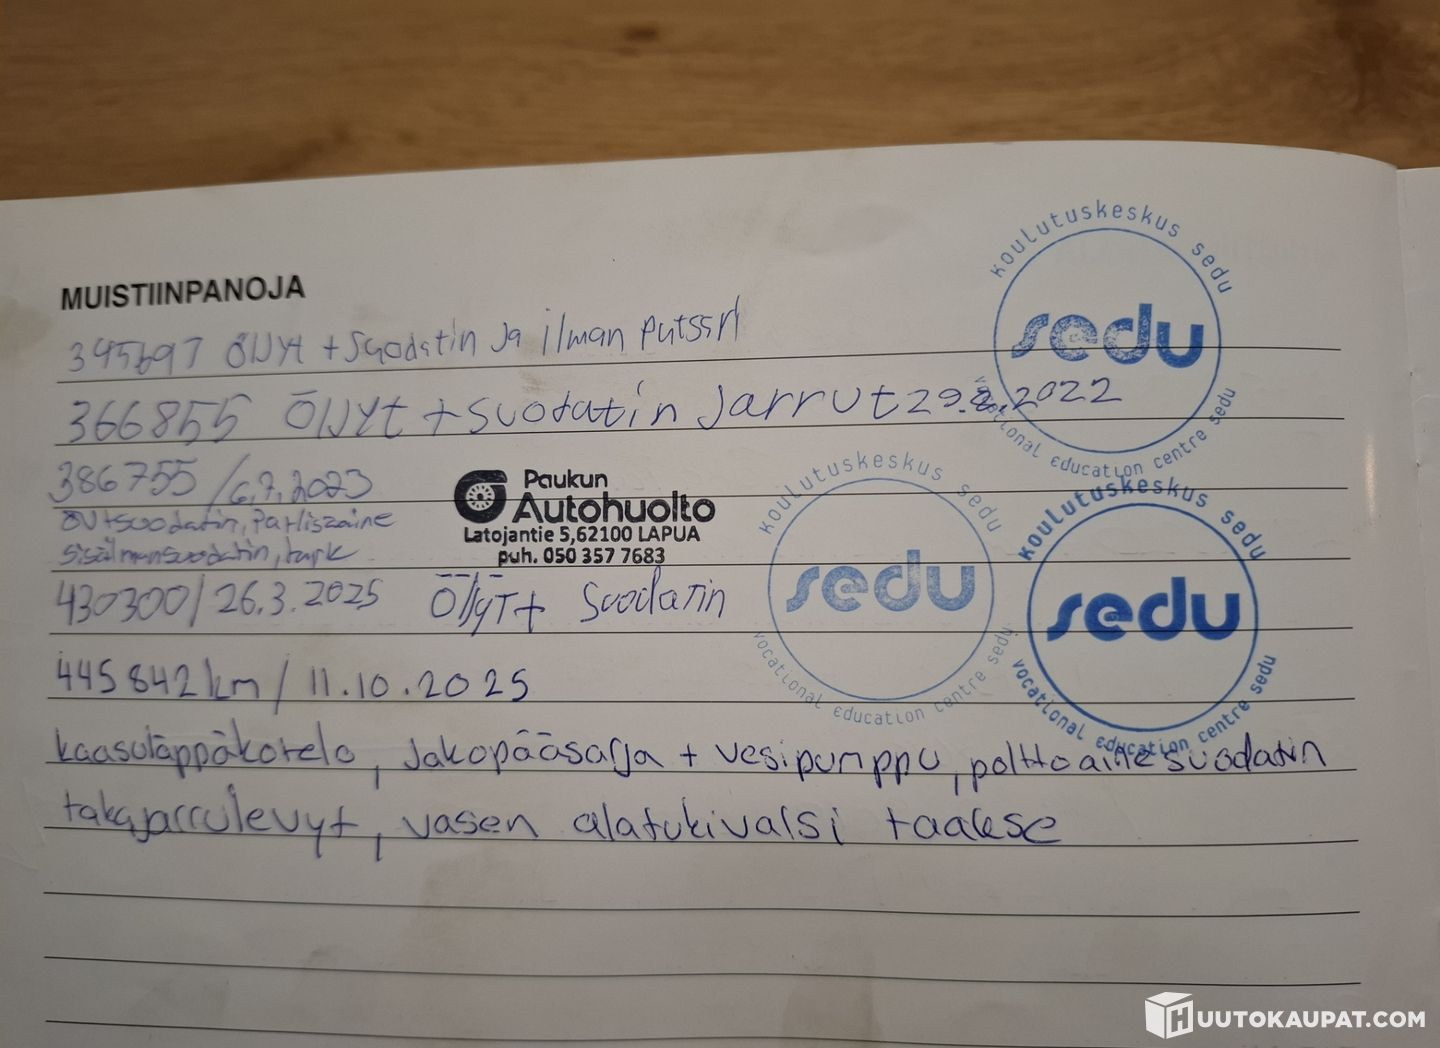 MUISTIINPANOJA
koulutuskeskus sedu
sedu
vocational education centre sedu
345697 Öljyt + Suodatin ja ilman putssri
366855 Öljyt + suodatin jarrut 29.8.2022
386755 / 6.7.2023
Paukun
Autohuolto
Latojantie 5, 62100 LAPUA
puh. 050 357 7683
koulutuskeskus sedu
sedu
vocational education centre sedu
koulutuskeskus sedu
sedu
vocational education centre sedu
430300 / 26.3.2025 Öljyt + Suodatin
445842km / 11.10.2025
kaasuläppäkotelo, Jakopääsarja + vesipumppu, polttoainesuodatin
takajarrulevyt, vasen alatukivarsi taakse
HUUTOKAUPAT.COM